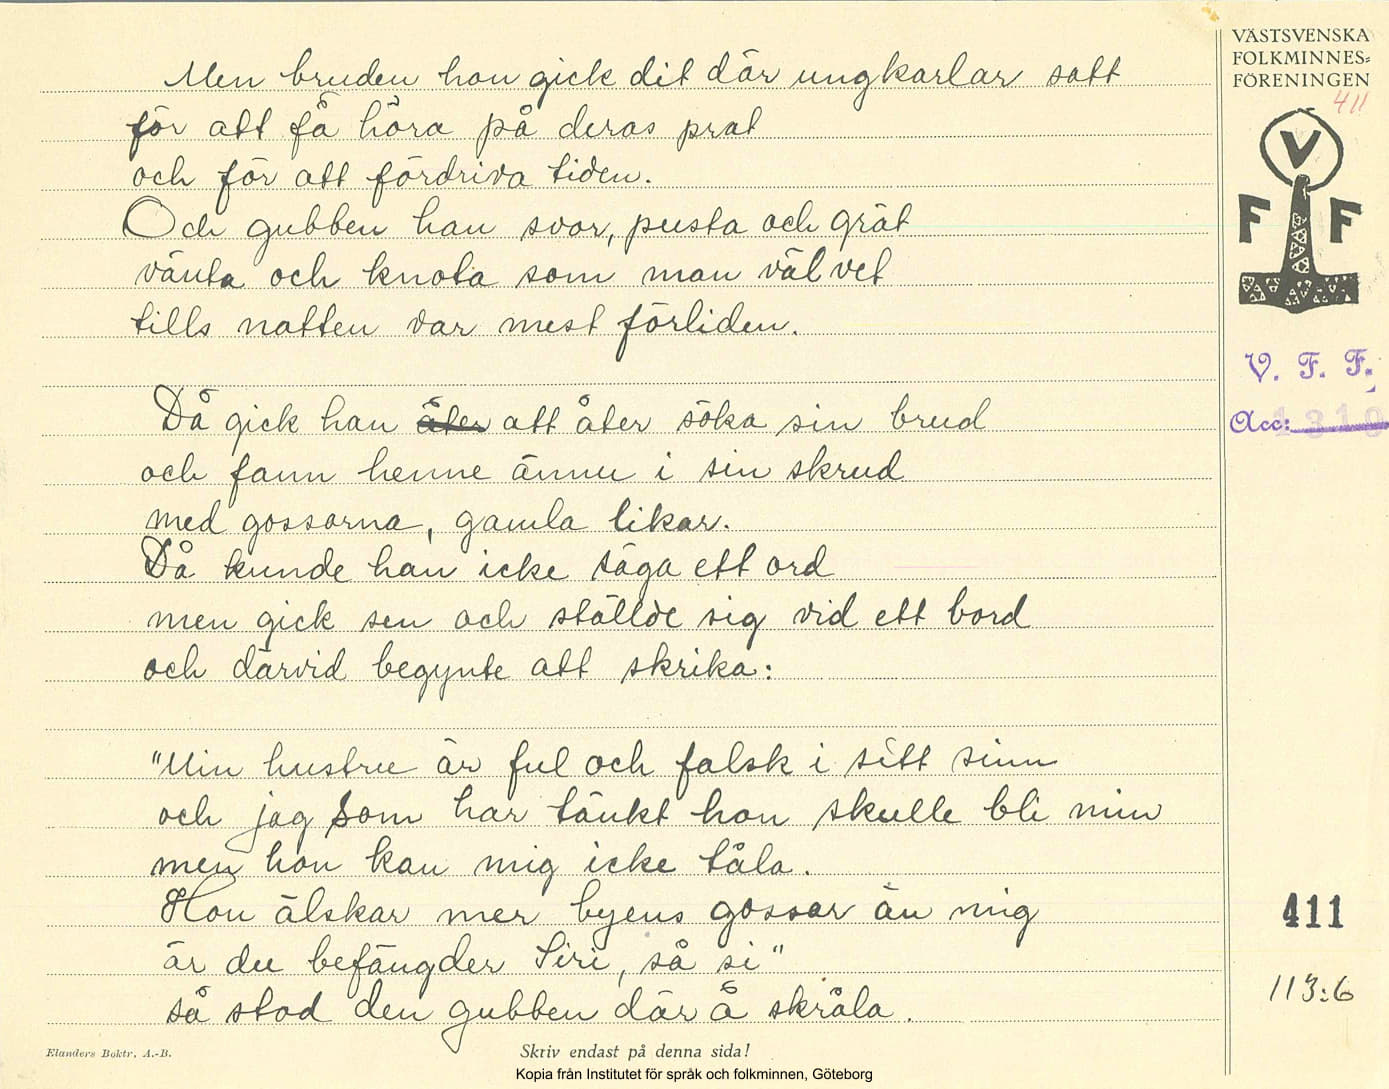 Men bruden hon gick dit där ungkarlar satt
för att få höra på deras prat
och för att fördriva tiden.
Och gubben han svor, pusta och grät
vänta och knota som man väl vet
tills natten var mest förliden.
Då gick han åter att åter söka sin brud
och fann henne ännu i sin skrud
med gossarna, gamla likar.
Då kunde han icke säga ett ord
men gick sen och ställde sig vid ett bord
och därvid begynte att skrika:
"Min hustru är ful och falsk i sitt sinn
och jag som har tänkt hon skulle bli min
men hon kan mig icke tåla.
Hon älskar mer byens gossar än mig
är du befängder Siri, så si"
så stod den gubben där å skråla.
Elanders Boktr. A.-B.
Skriv endast på denna sida!
Kopia från Institutet för språk och folkminnen, Göteborg
VÄSTSVENSKA
FOLKMINNES-
FÖRENINGEN
411
V
F F
V. F. F.
Acc: 1319
411
113:6